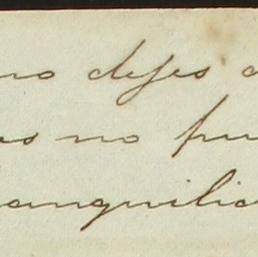 no dejes
as no pu
anquili